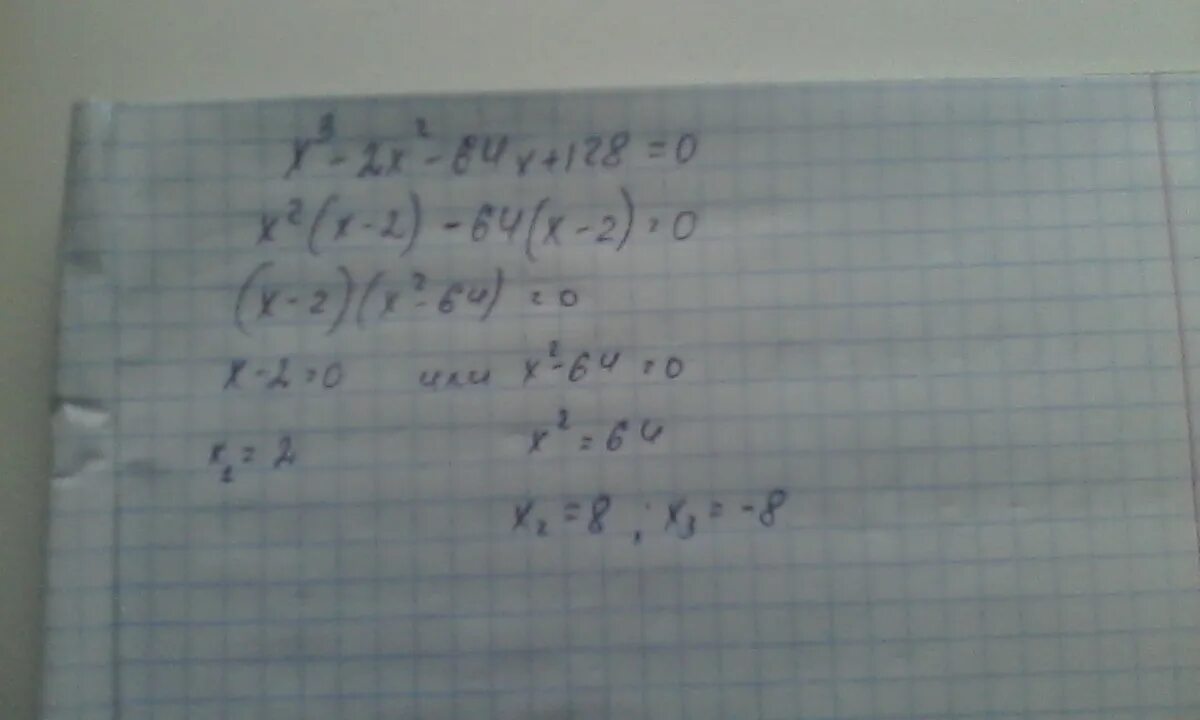 x³ - 2x² - 64x + 128 = 0
x²(x - 2) - 64(x - 2) = 0
(x - 2)(x² - 64) = 0
x - 2 = 0 или x² - 64 = 0
x₁ = 2 x² = 64
x₂ = 8 ; x₃ = -8